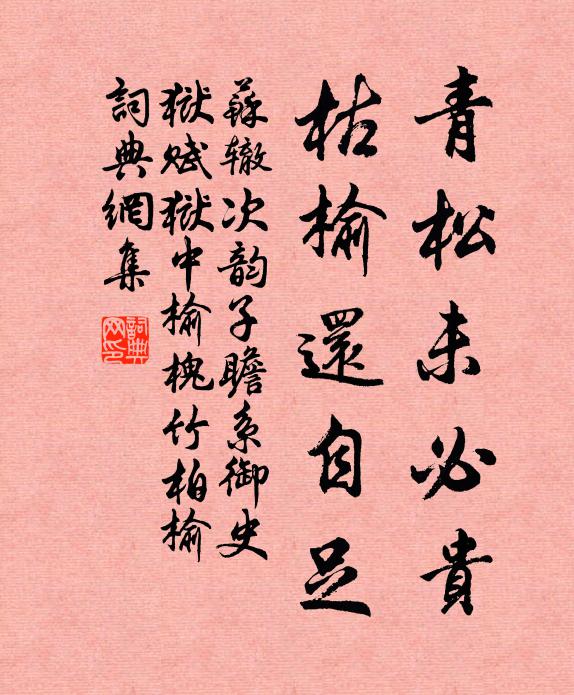 青松未必貴
枯榆還自足
蘇辙次韵子瞻系御史
獄賦獄中榆槐竹柏榆
詞典網集
詞典
网印